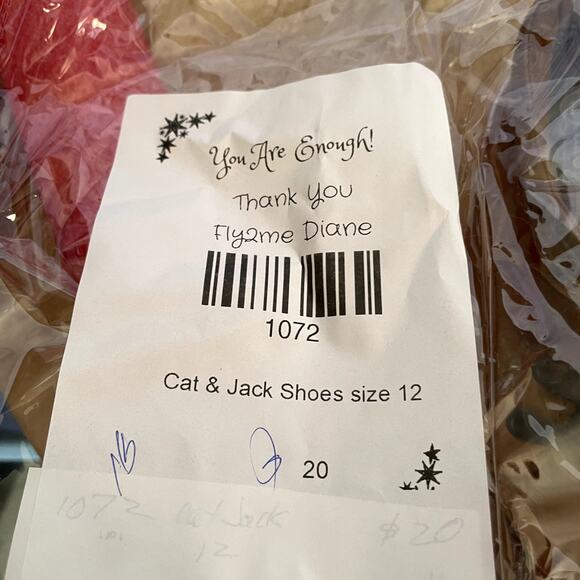 You Are Enough!
Thank You
Fly2me Diane
1072
Cat & Jack Shoes size 12
20
1072 Cat Jack $20
12